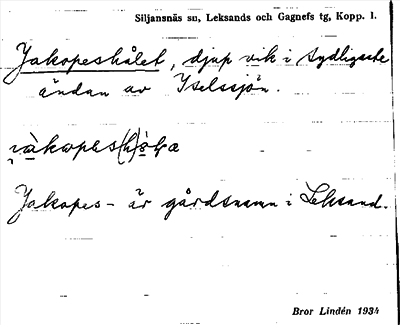 Siljansnäs sn, Leksands och Gagnefs tg, Kopp. l.
Jakopeshålet, djup vik i sydligaste
ändan av Iselssjön.
Jakopes- är gårdsnamn i Leksand.
Bror Lindén 1934